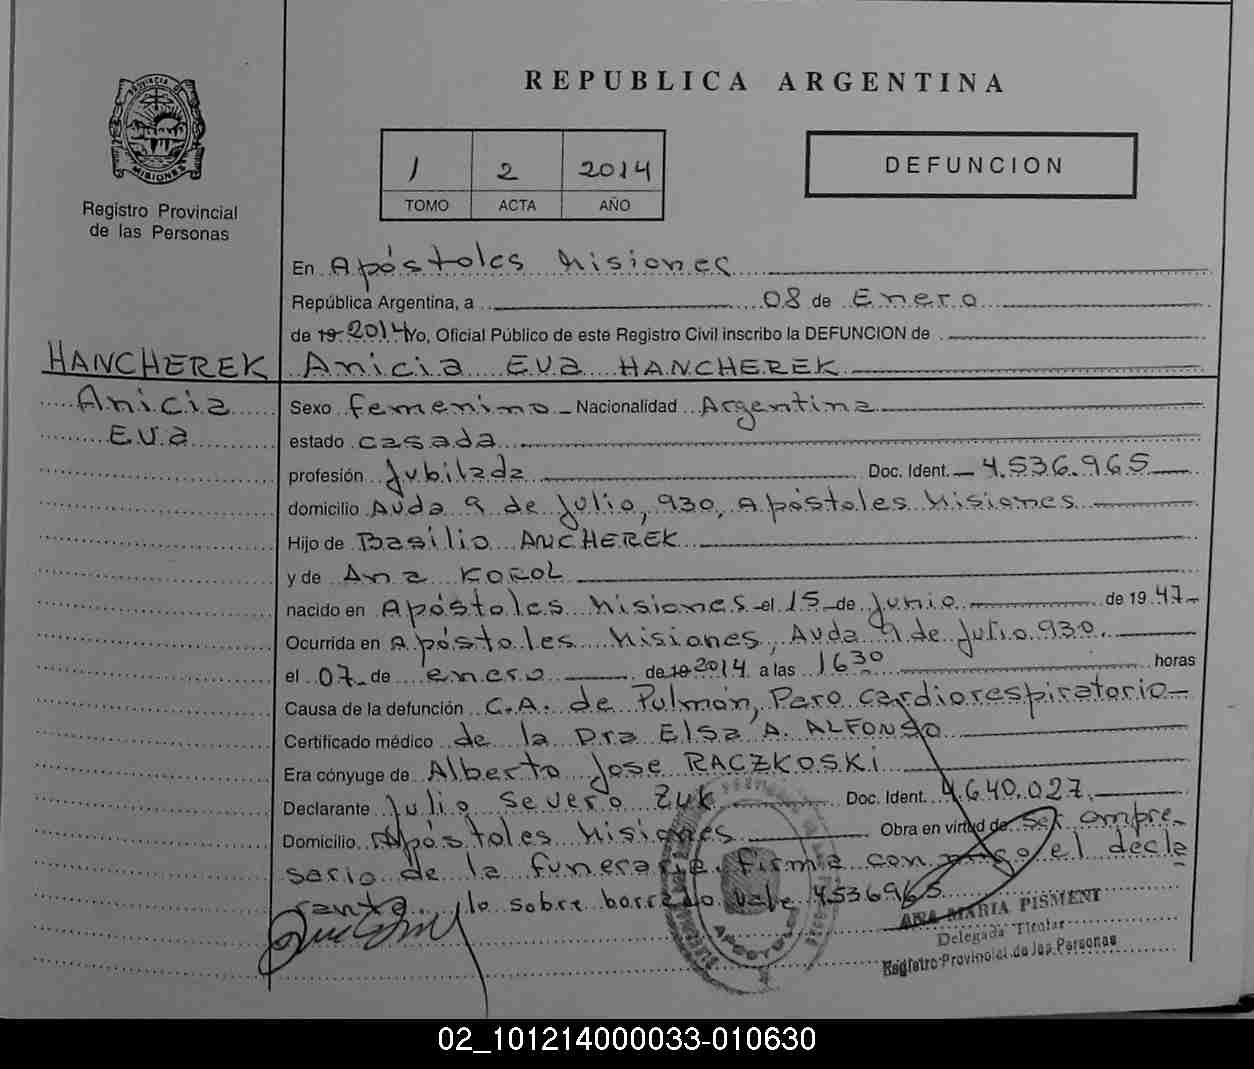 PROVINCIA DE
MISIONES
Registro Provincial
de las Personas
REPUBLICA ARGENTINA
1 2 2014
TOMO ACTA AÑO
DEFUNCION
En Apóstoles Misiones
República Argentina, a 08 de Enero
de 19 2014 Yo, Oficial Público de este Registro Civil inscribo la DEFUNCION de
HANCHEREK Anicia Eva HANCHEREK
Anicia Sexo femenino Nacionalidad Argentina
Eva estado casada
profesión Jubilada Doc. Ident. 4.536.965
domicilio Avda 9 de Julio, 930, Apóstoles Misiones
Hijo de Basilio ANCHEREK
y de Ana KOROL
nacido en Apóstoles Misiones el 15 de Junio de 19 47
Ocurrida en Apóstoles Misiones, Avda 9 de Julio 930.
el 07 de enero de 19 2014 a las 16 30 horas
Causa de la defunción C.A. de Pulmón, Paro cardiorespiratorio
Certificado médico de la Dra Elsa A. ALFONSO
Era cónyuge de Alberto Jose RACZKOSKI
Declarante Julio Severo ZUK Doc. Ident. 4.640.027
Domicilio Apóstoles Misiones Obra en virtud de Ser empre-
sario de la funeraria. firma con el decla
rante. lo sobre borrado vale 4536965
ANA MARIA PISMENI
Delegada Titular
Registro Provincial de las Personas
02_101214000033-010630